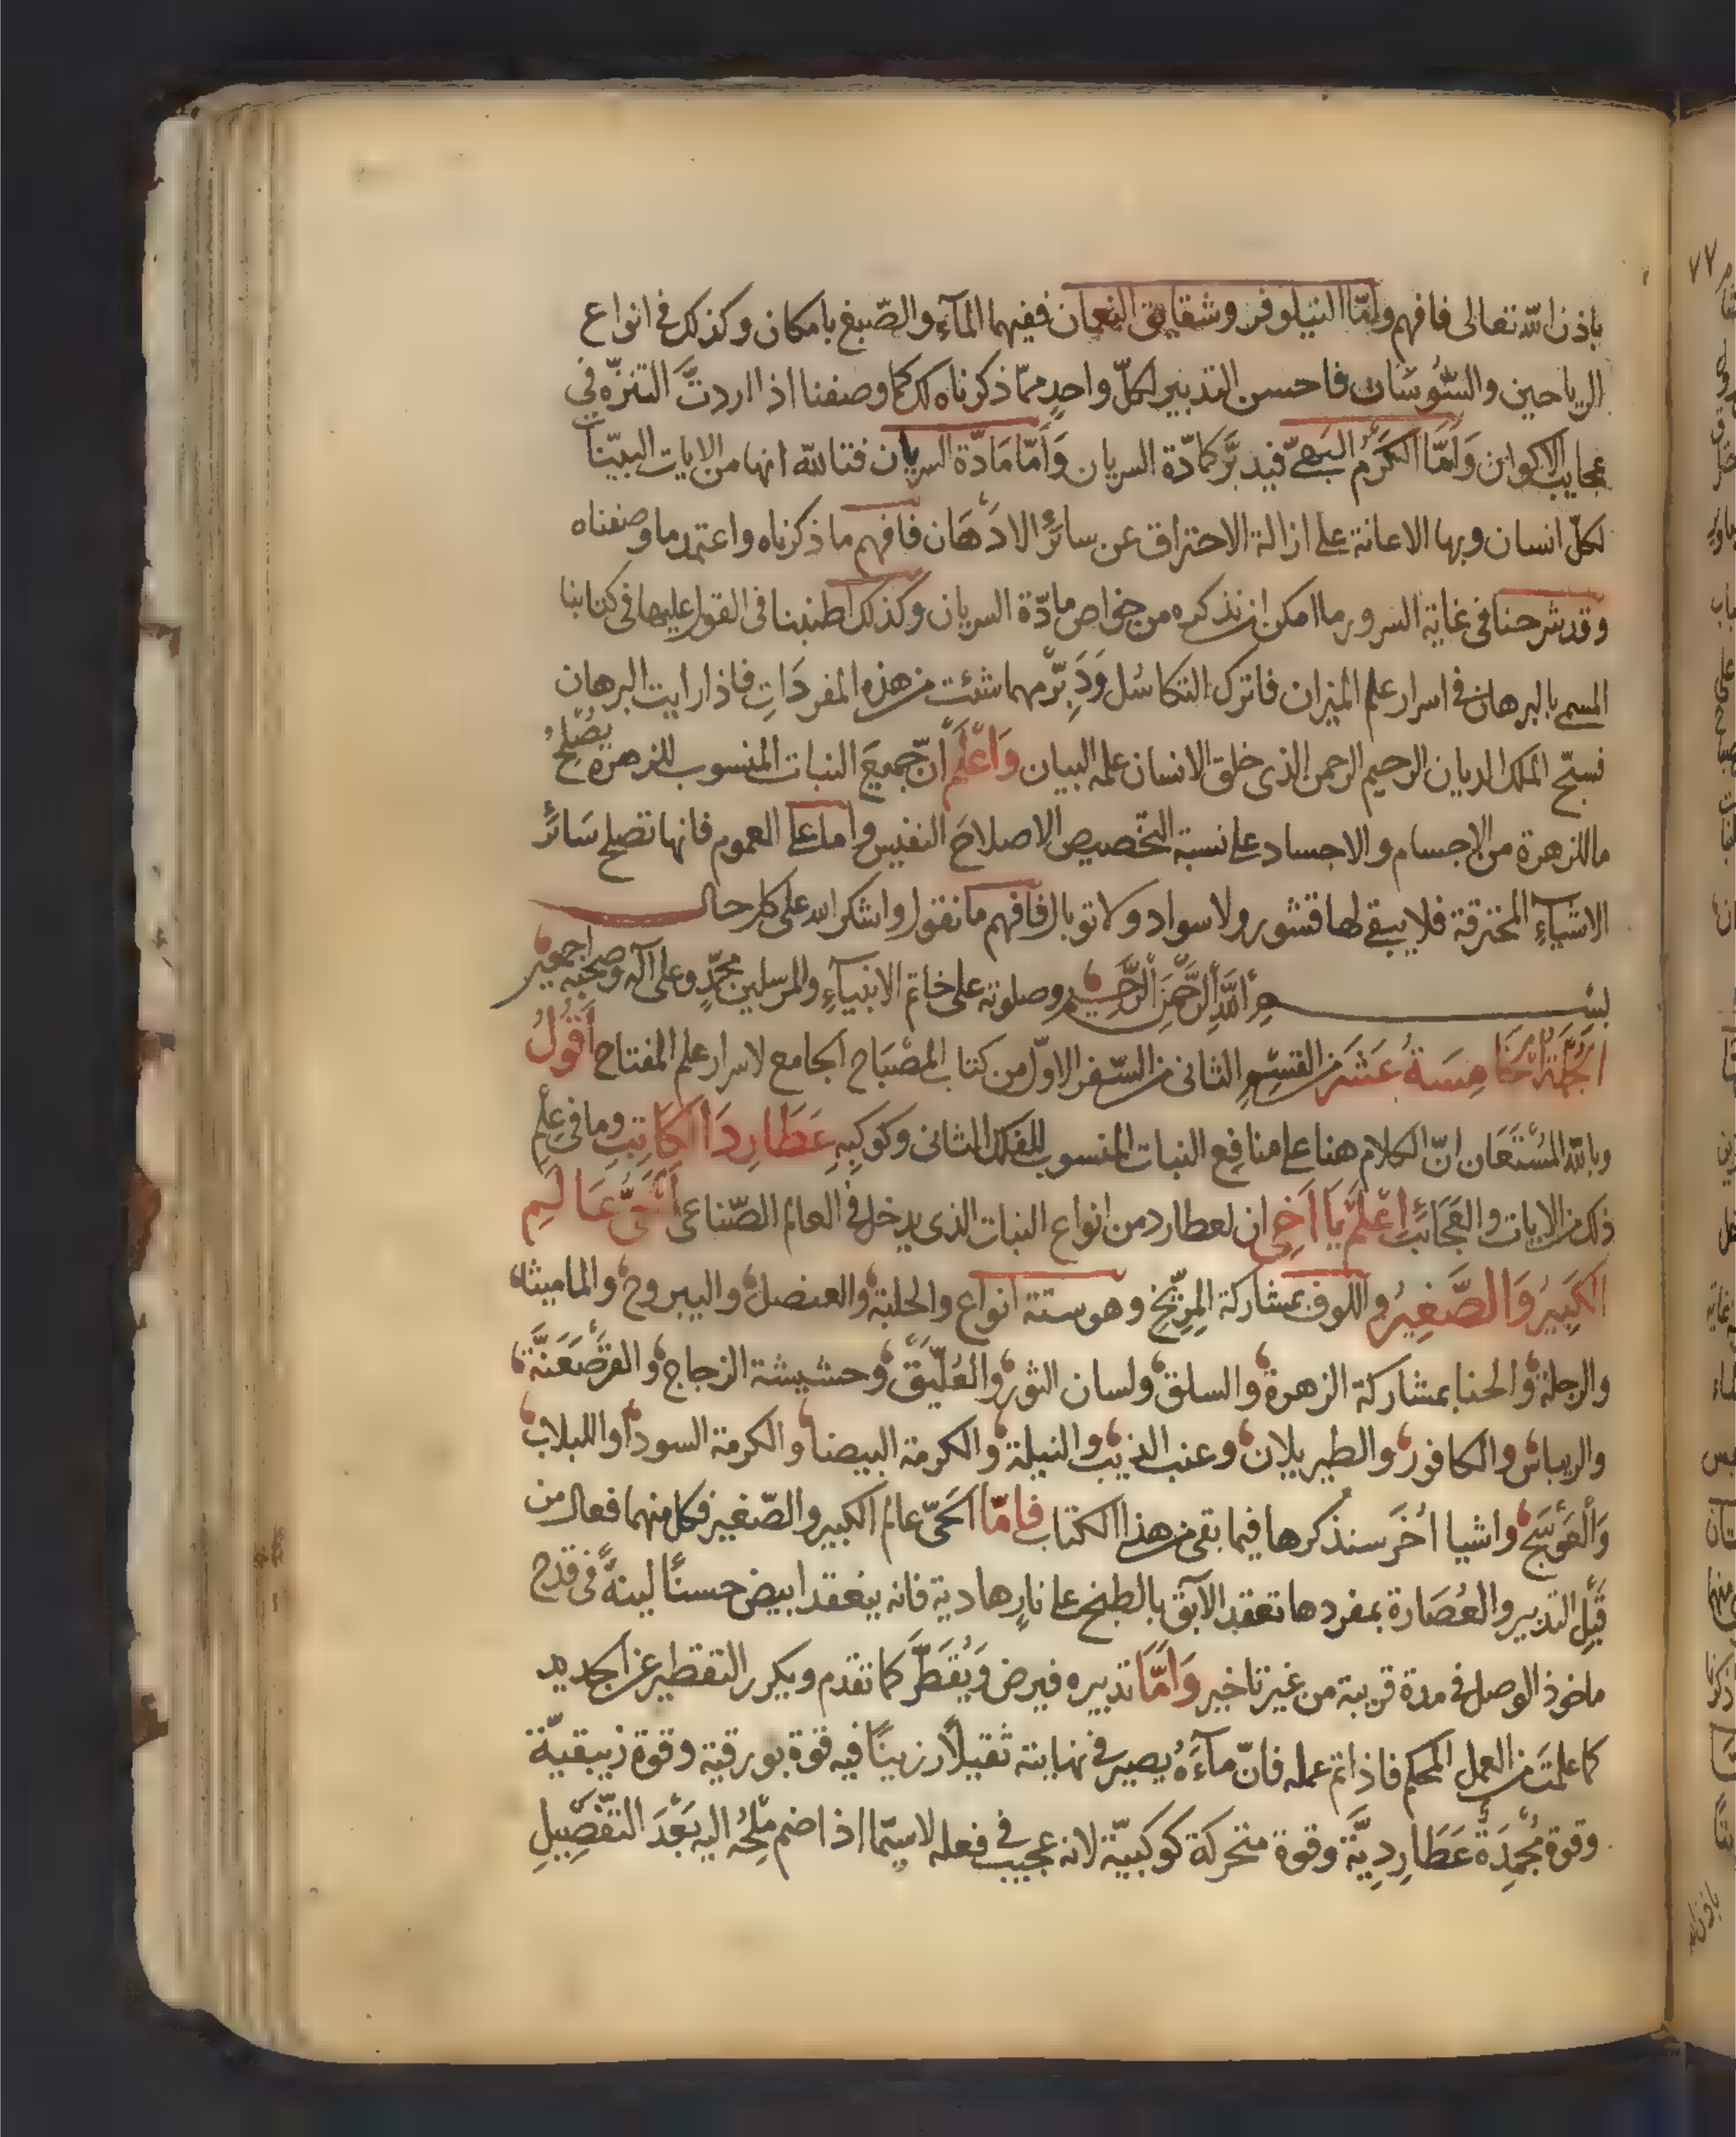 باذن الله تعالى فافهم وامّا النيلوفر وشقايق النعمان ففيهما المآء والصّبغ بامكان وكذلك فى انواع
الرياحين والسّوسَان فاحسن التدبير لكلّ واحدٍ ممّا ذكرناه لك كما وصفنا اذا اردتَّ التنزّه فى
عجايب الاكوان وَامَّا الكَرْم البَهىّ فيدبَّر كمادّة السريان وَامَّا مَادّة السريان فتالله انها من الايات البيّنات
لكلّ انسان وبها الاعانة على ازالة الاحتراق عن سائر الادْهَان فافهم ما ذكرناه واعتمد ما وصفناه
وقد شرحنا فى غاية السرور ما امكن ان نذكره من خواص مادّة السريان وكذلك اطنبنا فى القول عليها فى كتابنا
المسمى بالبرهان فى اسرار علم الميزان فاترك التكاسُل وَدَبِّرْ مهما شئت من هذه المفردَاتِ فاذا رايت البرهان
فسبّح الملك الديان الرحيم الرحمن الذى خلق الانسان علمه البيان وَاعْلَمْ انّ جميعَ النبات المنسوب للزهرة يصْلحُ
ما للزهرة من الاجسام والاجساد على نسبة التخصيص الاصلاحَ النفيس واما على العموم فانها تصلح سَائرَ
الاشيآءِ المحترقة فلا يبقى لها قشور ولا سواد ولا توبال فافهم ما نقول واشكر الله على كل حال
بسم اللَّهِ الرَّحْمَنِ الرَّحِيم وصلوته على خاتم الانبيآءِ والمرسلين محمّدٍ وعلى آله وصحبه اجمعين
الجُمْلَةُ الخَامِسَةُ عَشَرَ من القسْمِ الثانى من السّفر الاوّل من كتاب المصْبَاح الجامع لاسرار علم المفتاح اَقُولُ
وبالله المُسْتَعَان انّ الكلام هنا على منافِع النبات المنسوب للفلك الثانى وكوكبِهِ عَطَارِدَ الكَاتِبِ وما فى عِلْمِ
ذلك من الايات والعَجَائبِ اِعْلَمْ يَا اَخِى ان لعطارد من انواع النبات الذى يدخل فى العالم الصّناعى الحَىُّ عَالَمِ
الكَبِيرُ وَالصَّغِيرُ واللوف بمشاركة المِرّيخ وهو ستة انواع والحلبة والعنصل واليبروح والماميثا
والرجلة والحنا بمشاركة الزهرة والسلق ولسان الثور والعُلّيَقْ وحشيشة الزجاج والقرْصَعَنَّة
والريباس والكافور والطبريلان وعنب الذيب والنيلة والكرمة البيضا والكرمة السودا واللبلاب
وَالْعَوْسَج واشيا اُخَر سنذكرها فيما بقى من هذا الكتاب فامّا الحَىّ عالم الكبير والصّغير فكل منهما فعال من
قَبْلِ التدبير والعُصَارة بمفردها تعقد الآبق بالطبخ على نارٍ هادية فانه ينعقد ابيض حسنًا لينةً فى قدح
ماخوذ الوصل فى مدة قريبة من غير تاخير وَامَّا تدبيره فيرض وَيُقَطَّر كما تقدم ويكرر التقطير عن الجديد
كما علمتَ من العمل المحكم فاذا تم عمله فانّ مآءَهُ يصير فى نهايته ثقيلاً رزينًا فيه قوة بورقية وقوة زيبقيّة
وقوة مُجْمِدَةٌ عَطَارِدِيَّة وقوة متحركة كوكبيّة لانه عجيب فى فعله لاسيّما اذا ضم مِلْحُه اليه بَعْدَ التّفْصِيلِ